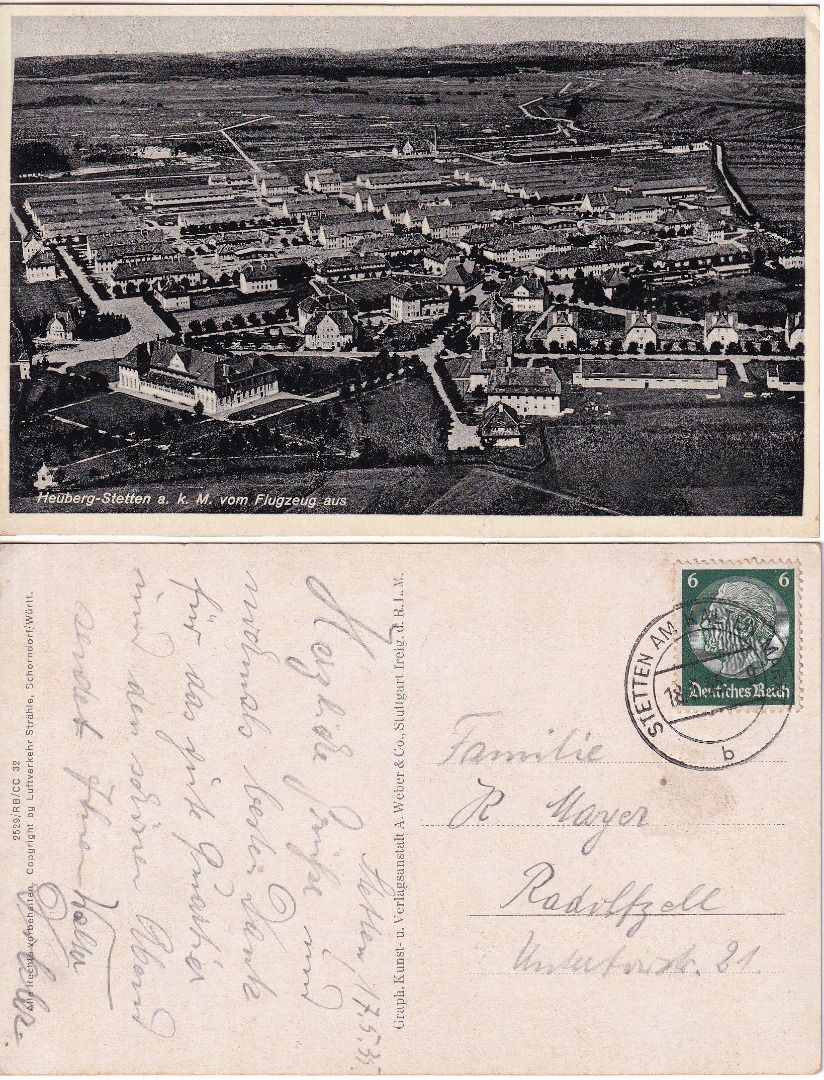 Heuberg-Stetten a. k. M. vom Flugzeug aus
2529/RB/CC 32
Alle Rechte vorbehalten. Copyright by Luftverkehr Strähle, Schorndorf/Württ.
Stetten, 17.5.35
Herzliche Grüße und
nochmals besten Dank
für das gute Quartier
und den schönen Abend
sendet Ihnen
Graph. Kunst- u. Verlagsanstalt A. Weber & Co., Stuttgart freig. d. R.L.M.
6 6
Deutsches Reich
STETTEN AM KALTEN
18.
b
Familie
R Mayer
Radolfzell
21.